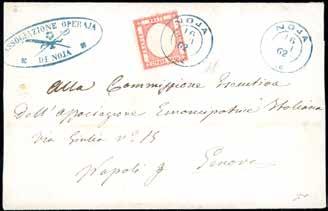 ASSOCIAZIONE OPERAJA
DI NOJA
NOJA
16
62
NOJA
16
62
Alla Commissione Esecutiva
dell'Associazione Emancipatrice Italiana
Via Giulia n° 15
Napoli p Genova